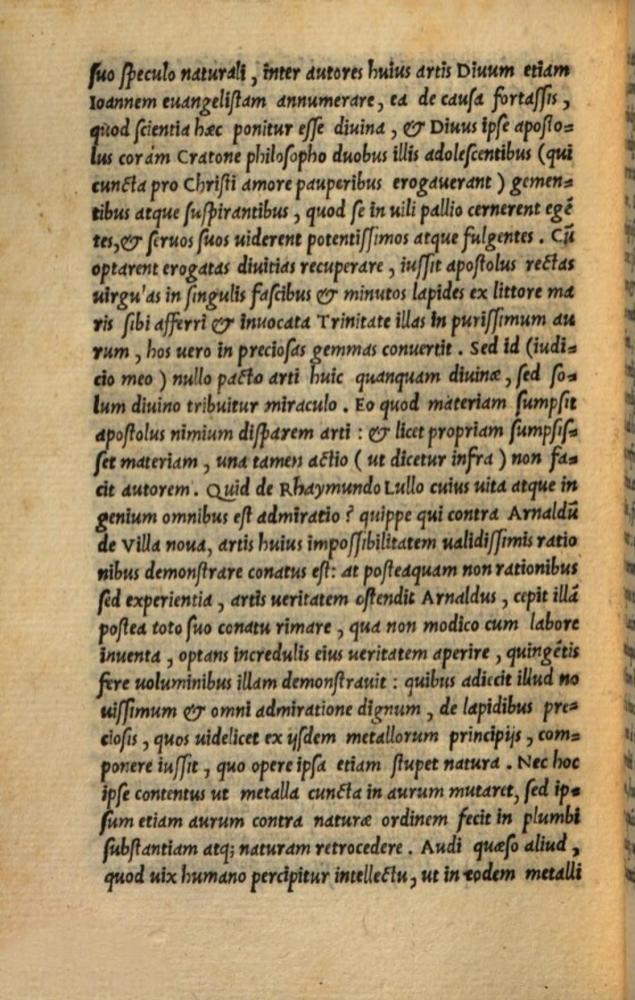 ſuo ſpeculo naturali, inter autores huius artis Diuum etiam
Ioannem euangeliſtam annumerare, ea de cauſa fortaſſis,
quod ſcientia hæc ponitur eſſe diuina, & Diuus ipſe apoſto=
lus corám Cratone philoſopho duobus illis adoleſcentibus (qui
cuncta pro Chriſti amore pauperibus erogauerant) gemen=
tibus atque ſuſpirantibus, quod ſe in uili pallio cernerent egẽ
tes, & ſeruos ſuos uiderent potentiſſimos atque fulgentes. Cũ
optarent erogatas diuitias recuperare, iuſſit apoſtolus rectas
uirgu'as in ſingulis faſcibus & minutos lapides ex littore ma
ris ſibi afferri & inuocata Trinitate illas in puriſſimum au
rum, hos uero in precioſas gemmas conuertit. Sed id (iudi=
cio meo) nullo pacto arti huic quanquam diuinæ, ſed ſo=
lum diuino tribuitur miraculo. Eo quod materiam ſumpſit
apoſtolus nimium diſparem arti: & licet propriam ſumpſiſ=
ſet materiam, una tamen actio (ut dicetur infra) non fa=
cit autorem. Quid de Rhaymundo Lullo cuius uita atque in
genium omnibus eſt admiratio? quippe qui contra Arnaldũ
de Villa noua, artis huius impoſſibilitatem ualidiſſimis ratio
nibus demonſtrare conatus eſt: at poſteaquam non rationibus
ſed experientia, artis ueritatem oſtendit Arnaldus, cepit illã
poſtea toto ſuo conatu rimare, qua non modico cum labore
inuenta, optans incredulis eius ueritatem aperire, quingẽtis
fere uoluminibus illam demonſtrauit: quibus adiecit illud no
uiſſimum & omni admiratione dignum, de lapidibus pre=
cioſis, quos uidelicet ex ijſdem metallorum principijs, com=
ponere iuſſit, quo opere ipſa etiam ſtupet natura. Nec hoc
ipſe contentus ut metalla cuncta in aurum mutaret, ſed ip=
ſum etiam aurum contra naturæ ordinem fecit in plumbi
ſubſtantiam atq; naturam retrocedere. Audi quæſo aliud,
quod uix humano percipitur intellectu, ut in eodem metalli